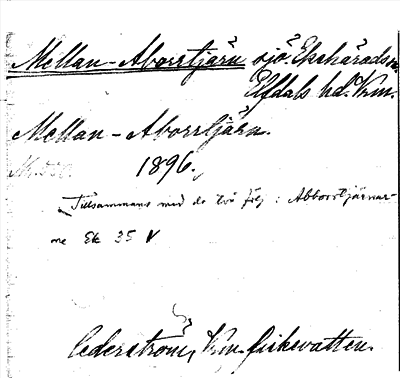 Mellan-Aborrtjärn sjö Ekshärads sn.
Elfdals hd. Vrm.
Mellan-Aborrtjärn.
1896.
Tillsammans med de två följ : Abborrtjärnar-
ne Ek 35 V
Cederström, Vrm. fiskevatten.